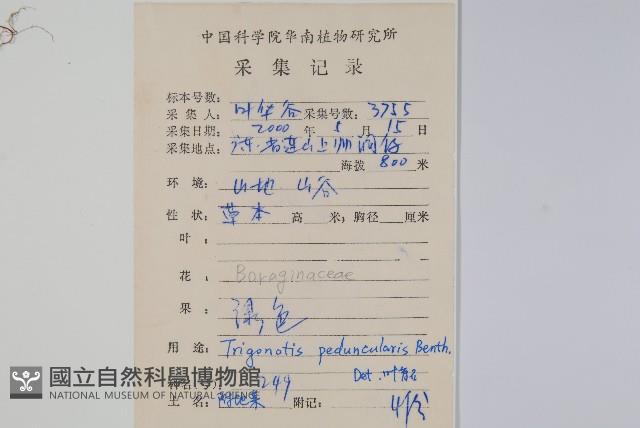 中国科学院华南植物研究所
采集记录
标本号数:
采集人: 叶华谷 采集号数: 3755
采集日期: 2000 年 5 月 15 日
采集地点:
海拔 800 米
环境: 山地 山谷
性状: 草本 高 米; 胸径 厘米
叶:
花: Boraginaceae
果: 绿色
用途: Trigonotis peduncularis Benth.
249 Det.
土名: 附地菜 附记: 4份
國立自然科學博物館
NATIONAL MUSEUM OF NATURAL SCIENCE